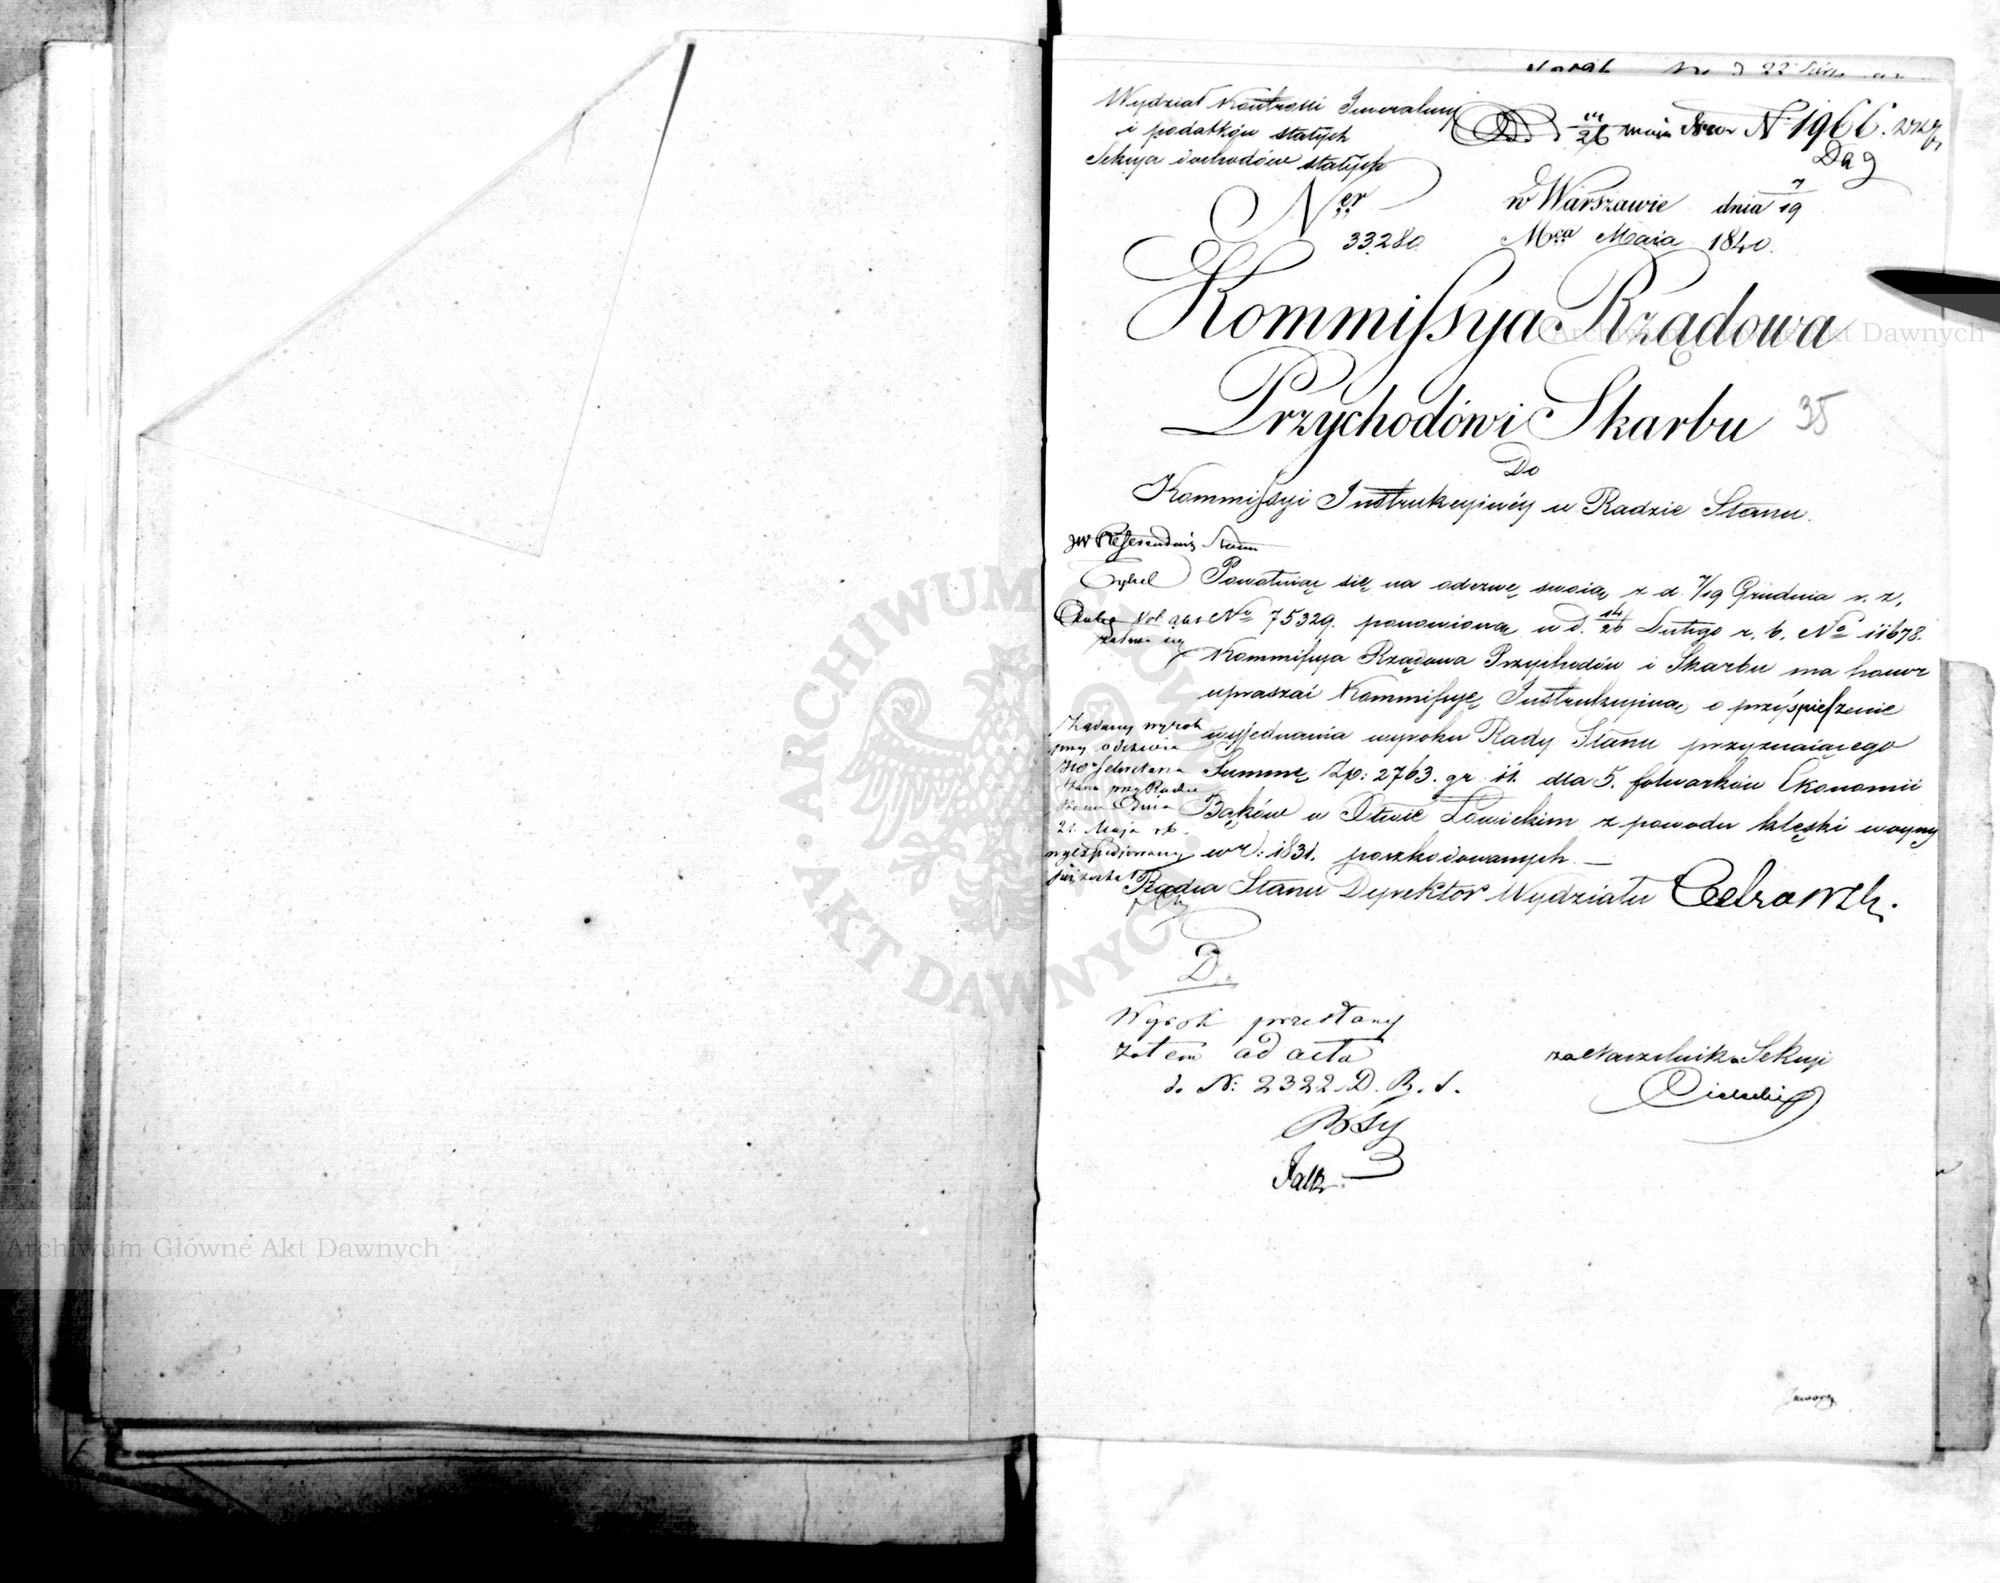 Wydział Kontrolli Jeneralney
i podatków stałych
Sekcya dochodów stałych
14/26 maja N 1966.
w Warszawie dnia 7/19
Ner
33280. Mca Maia 1840.
Kommissya Rządowa
Przychodów i Skarbu
35
Do
Kommissyi Instrukcyinéy w Radzie Stanu.
JW Referendarz Stanu
Powołuiąc się na odezwę swoią z d. 7/19 Grudnia r. z.
No 75329. ponowioną w d. 14/26 Lutego r. b. No 11678.
Kommissya Rządowa Przychodów i Skarbu ma honor
upraszać Kommissyę Instrukcyiną o przyśpieszenie
wyjednania wyroku Rady Stanu przyznaiącego
Summę Zp: 2763. gr 11. dla 5. folwarków Ekonomii
Bąków w Obwie Łowickim z powodu klęski woyny
w r: 1831. poszkodowanych. —
Żądany wyrok
przy odezwie
JWo Sekretarza
Stanu przy Radzie
Stanu Dnia
21. Maja rb.
wyexpedjowany
już został
Radca Stanu Dyrektor Wydziału
D.
Wyrok przesłany
zatem ad acta
d. N: 2322. D. R. S.
za Naczelnika Sekcyi
ARCHIWUM GŁÓWNE AKT DAWNYCH
Archiwum Główne Akt Dawnych
Archiwum Główne Akt Dawnych